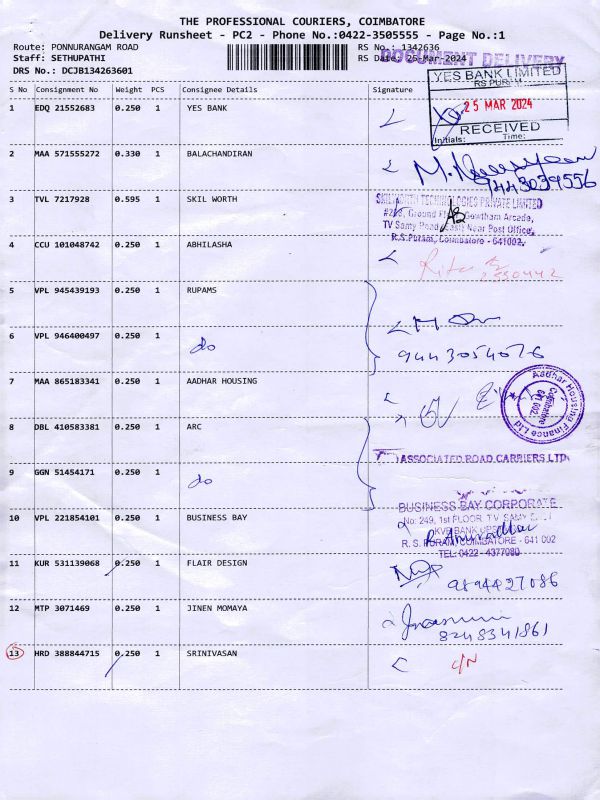 THE PROFESSIONAL COURIERS, COIMBATORE
Delivery Runsheet - PC2 - Phone No.:0422-3505555 - Page No.:1
Route: PONNURANGAM ROAD
Staff: SETHUPATHI
DRS No.: DCJB134263601
RS No.: 1342636
RS Date: 25-Mar-2024
DOCUMENT DELIVERY
S No Consignment No Weight PCS Consignee Details Signature
YES BANK LIMITED
RS PURAM
25 MAR 2024
RECEIVED
Initials: Time:
1 EDQ 21552683 0.250 1 YES BANK
2 MAA 571555272 0.330 1 BALACHANDIRAN
9443039556
3 TVL 7217928 0.595 1 SKIL WORTH
SKILWORTH TECHNOLOGIES PRIVATE LIMITED
Ground Gowtham Arcade,
TV Samy Road (East) Near Post Office,
R.S.Puram, Coimbatore - 641002.
4 CCU 101048742 0.250 1 ABHILASHA
5 VPL 945439193 0.250 1 RUPAMS
6 VPL 946400497 0.250 1 do
9443054076
7 MAA 865183341 0.250 1 AADHAR HOUSING
Aadhar Housing Finance Ltd
Coimbatore
641 002
8 DBL 410583381 0.250 1 ARC
ASSOCIATED ROAD CARRIERS LTD
9 GGN 51454171 0.250 1 do
10 VPL 221854101 0.250 1 BUSINESS BAY
BUSINESS BAY CORPORATE
No: 249, 1st FLOOR, TV SAMY
KVB BANK
R. S. PURAM, COIMBATORE - 641 002
TEL: 0422 - 4377080
11 KUR 531139068 0.250 1 FLAIR DESIGN
9894427086
12 MTP 3071469 0.250 1 JINEN MOMAYA
8248341861
13 HRD 388844715 0.250 1 SRINIVASAN
C/N